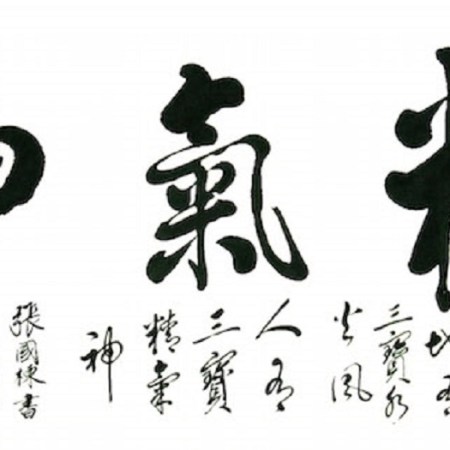 氣
三寶水
火風
人有
三寶
精氣
神
張國書